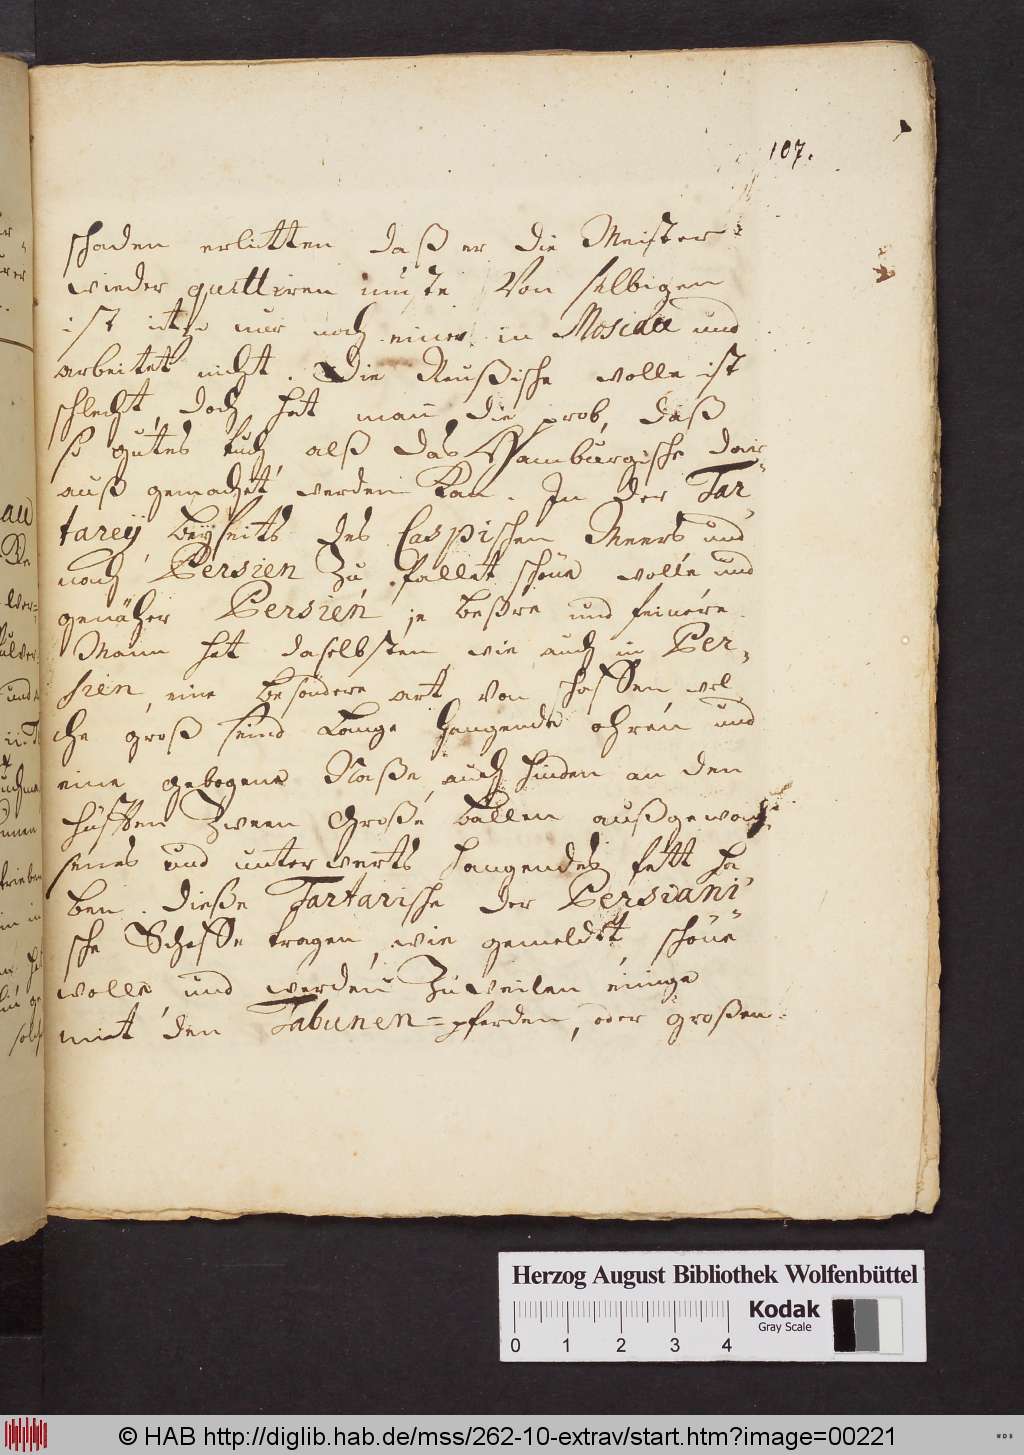 107.
schaden erlitten daß er die Meister
wieder quittiren muste Von selbigen
ist itzo nur noch einer in Moscau und
arbeitet nicht. Die Reußische wolle ist
schlecht, doch hat mann die prob, daß
so gutes tuch alß das Hamburgische dar=
auß gemachet werden kan. In der Tar=
tarey beyseits des Caspischen Meers und
nach Persien zu fallet schöne wolle und
genäher Persien je beßre und feinere.
Mann hat daselbsten wie auch in Per=
sien, eine besondere art von schaffen, wel
che groß seind Lange hangende ohren und
eine gebogene Naße, auch hinden an den
hüfften zween Große ballen außgewach=
senes und unterwerts hangendes fett ha
ben. dieße Tartarische der Persiani
sche Schaffe tragen, wie gemeldet, schöne
wolle und werden zuweilen einige
mit den Tabunen=pferden, oder großen
Herzog August Bibliothek Wolfenbüttel
0 1 2 3 4
Kodak
Gray Scale
© HAB http://diglib.hab.de/mss/262-10-extrav/start.htm?image=00221